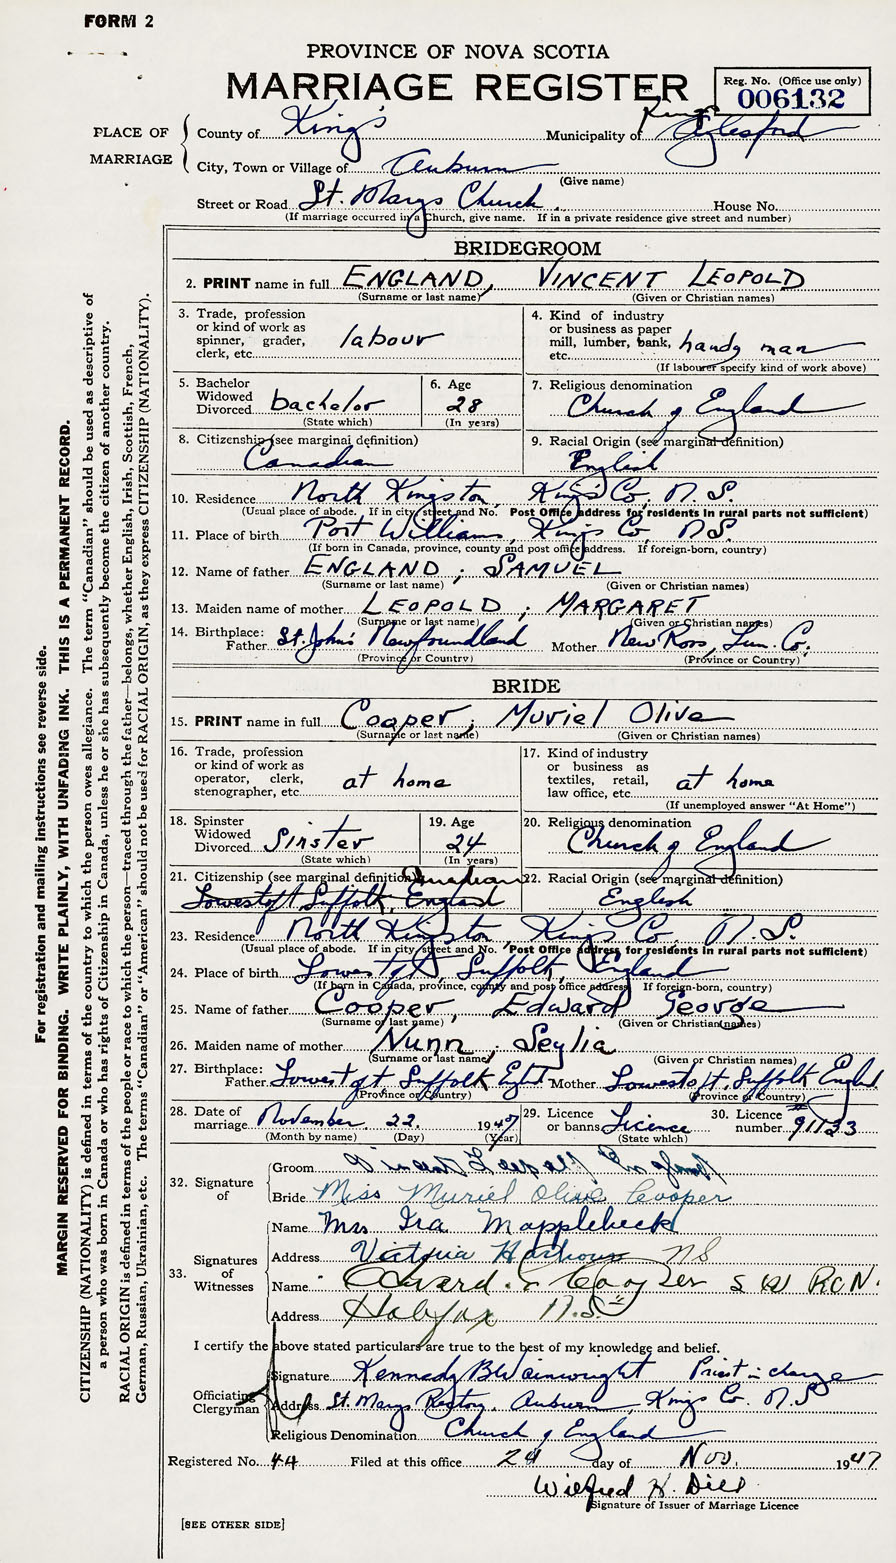 FORM 2
PROVINCE OF NOVA SCOTIA
MARRIAGE REGISTER
Reg. No. (Office use only)
006132
PLACE OF MARRIAGE
County of King's Municipality of Kings Aylesford
City, Town or Village of Auburn
(Give name)
Street or Road St. Marys Church. House No.
(If marriage occurred in a Church, give name. If in a private residence give street and number)
BRIDEGROOM
2. PRINT name in full ENGLAND, VINCENT LEOPOLD
(Surname or last name) (Given or Christian names)
3. Trade, profession or kind of work as spinner, grader, clerk, etc. labour
4. Kind of industry or business as paper mill, lumber, bank, etc. handy man
(If labourer specify kind of work above)
5. Bachelor Widowed Divorced bachelor
(State which)
6. Age 28
(In years)
7. Religious denomination
Church of England
8. Citizenship (see marginal definition)
Canadian
9. Racial Origin (see marginal definition)
English
10. Residence North Kingston, King's Co, N.S.
(Usual place of abode. If in city street and No. Post Office address for residents in rural parts not sufficient)
11. Place of birth Port Williams, Kings Co, N.S.
(If born in Canada, province, county and post office address. If foreign-born, country)
12. Name of father ENGLAND; SAMUEL
(Surname or last name) (Given or Christian names)
13. Maiden name of mother LEOPOLD; MARGARET
(Surname or last name) (Given or Christian names)
14. Birthplace: Father St. John's Newfoundland Mother New Ross, Lun. Co.
(Province or Country) (Province or Country)
BRIDE
15. PRINT name in full Cooper, Muriel Olive
(Surname or last name) (Given or Christian names)
16. Trade, profession or kind of work as operator, clerk, stenographer, etc. at home
17. Kind of industry or business as textiles, retail, law office, etc. at home
(If unemployed answer "At Home")
18. Spinster Widowed Divorced Sinster
(State which)
19. Age 24
(In years)
20. Religious denomination
Church of England
21. Citizenship (see marginal definition) Canadian
Lowestoft Suffolk, England
22. Racial Origin (see marginal definition)
English
23. Residence North Kingston Kings Co. N.S.
(Usual place of abode. If in city street and No. Post Office address for residents in rural parts not sufficient)
24. Place of birth Lowestoft, Suffolk, England
(If born in Canada, province, county and post office address. If foreign-born, country)
25. Name of father Cooper, Edward George
(Surname or last name) (Given or Christian names)
26. Maiden name of mother Nunn; Seylia
(Surname or last name) (Given or Christian names)
27. Birthplace: Father Lowestoft Suffolk Englt Mother Lowestoft, Suffolk England
(Province or Country) (Province or Country)
28. Date of marriage November 22 1947
(Month by name) (Day) (Year)
29. Licence or banns Licence
(State which)
30. Licence number #91123
32. Signature of
Groom Vincent Leopold England
Bride Miss Muriel Olive Cooper
33. Signatures of Witnesses
Name Mrs Ira Mapplebeck
Address Victoria Harbour NS
Name Edward. G Cooper S W RCN.
Address Halifax N.S.
I certify the above stated particulars are true to the best of my knowledge and belief.
Officiating Clergyman
Signature Kennedy B Wainwright Priest in charge
Address St. Marys Rectory, Auburn, Kings Co. N.S
Religious Denomination Church of England
Registered No. 44 Filed at this office 24 day of Nov. 1947
Wilfred H. Dill
Signature of Issuer of Marriage Licence
[SEE OTHER SIDE]
For registration and mailing instructions see reverse side.
MARGIN RESERVED FOR BINDING. WRITE PLAINLY, WITH UNFADING INK. THIS IS A PERMANENT RECORD.
CITIZENSHIP (NATIONALITY) is defined in terms of the country to which the person owes allegiance. The term "Canadian" should be used as descriptive of
a person who was born in Canada or who has rights of Citizenship in Canada, unless he or she has subsequently become the citizen of another country.
RACIAL ORIGIN is defined in terms of the people or race to which the person—traced through the father—belongs, whether English, Irish, Scottish, French,
German, Russian, Ukrainian, etc. The terms "Canadian" or "American" should not be used for RACIAL ORIGIN, as they express CITIZENSHIP (NATIONALITY).